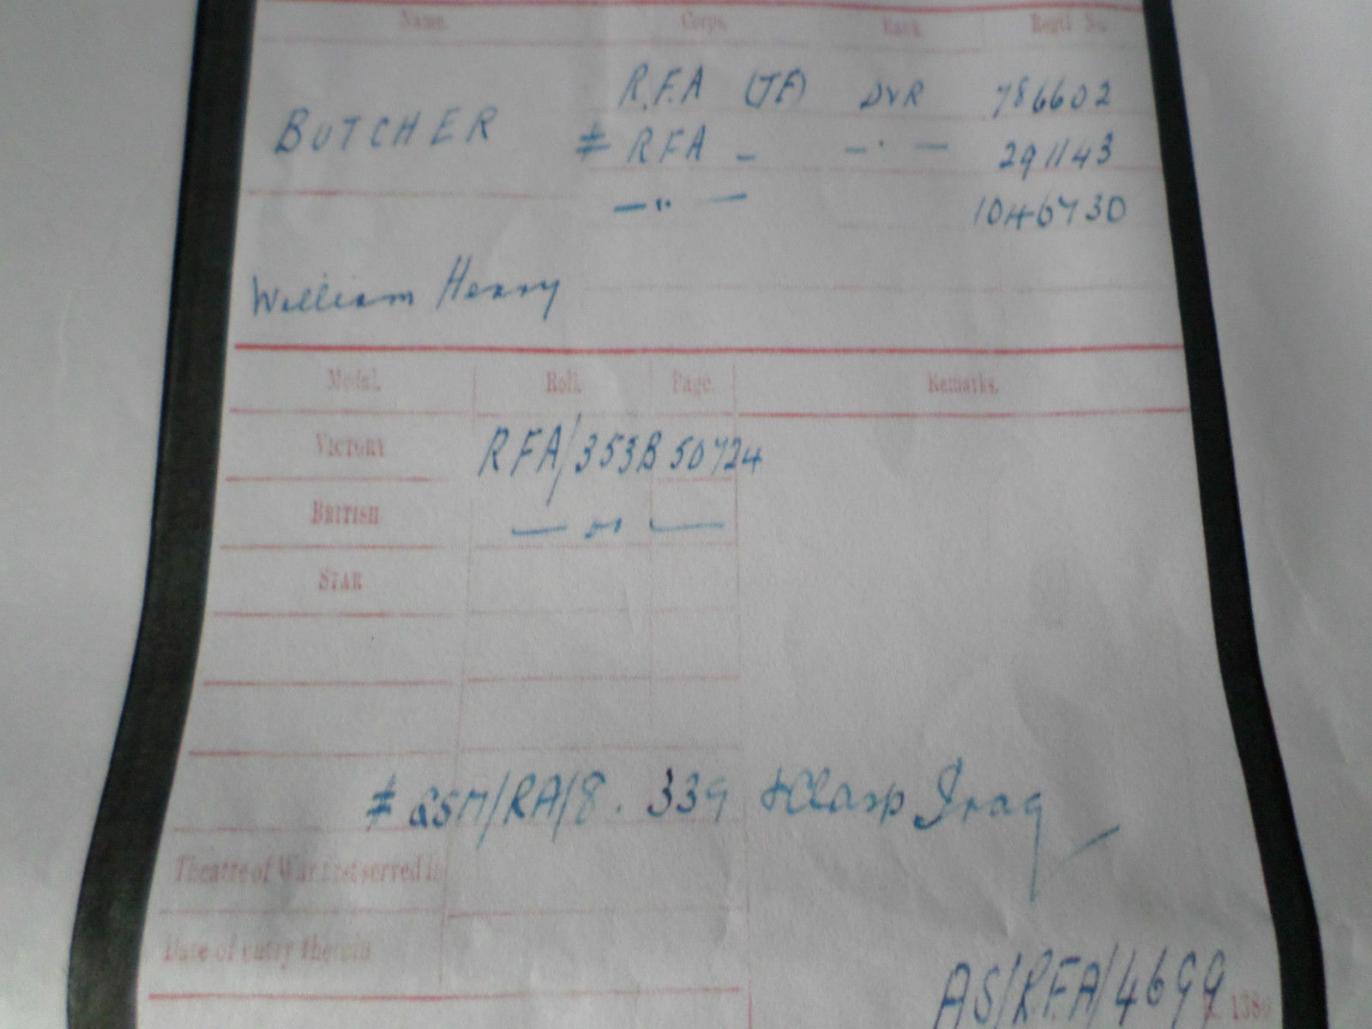 Name. Corps. Rank Regtl No.
R.F.A (TF) DVR 786602
BUTCHER ≠ RFA – –·– 291143
– " – 1046730
William Henry
Medal. Roll. Page. Remarks.
VICTORY RFA/353B 50724
BRITISH – " –
STAR
≠ GSM/RA/8. 339 +Clasp Iraq
Theatre of War first served in
Date of entry therein
AS/R.F.A/4699 1380